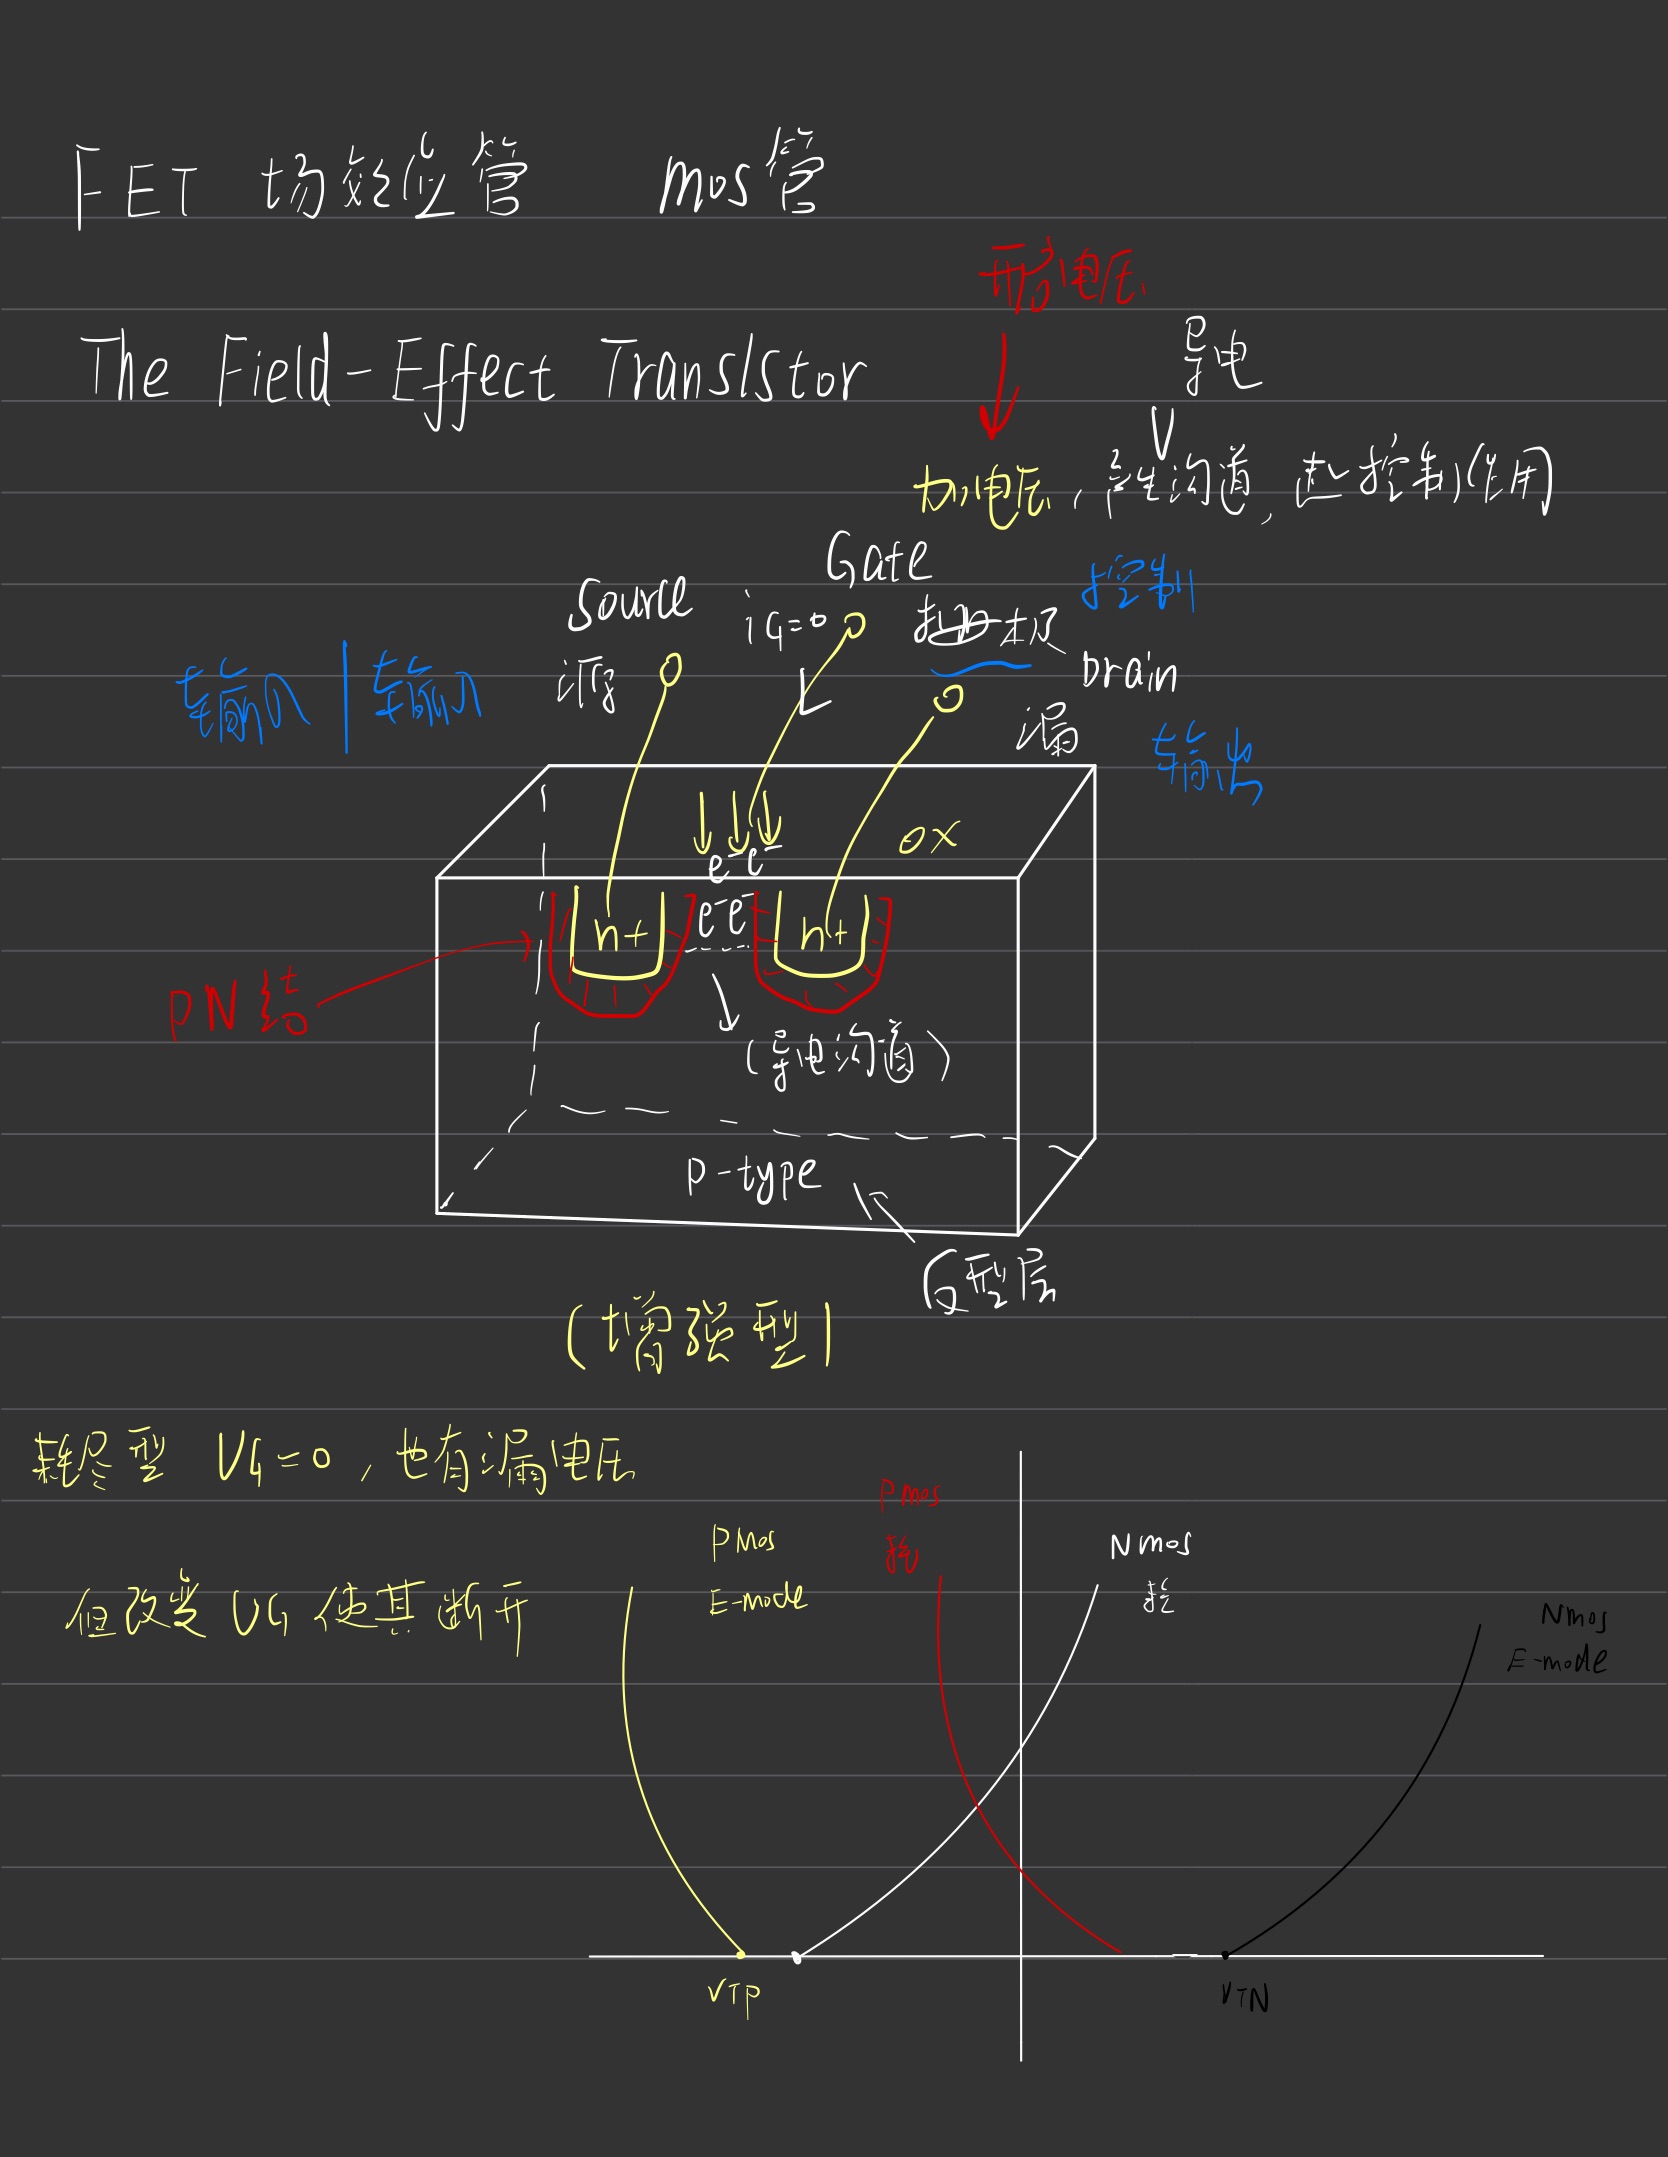 FET 场效应管 mos管
开启电压
The Field-Effect Transistor
导电
加电压，产生沟道，起控制作用
Gate
Source
iG=0
极
控制
源
Drain
漏
输入
输入
输出
ox
e⁻e⁻
e⁻e⁻
n+
n+
PN结
(导电沟道)
p-type
反型层
(增强型)
耗尽型 VG=0，也有漏电压
PMos
PMos
E-mode
Nmos
耗
但改变VG使其断开
Nmos
E-mode
VTP
VTN